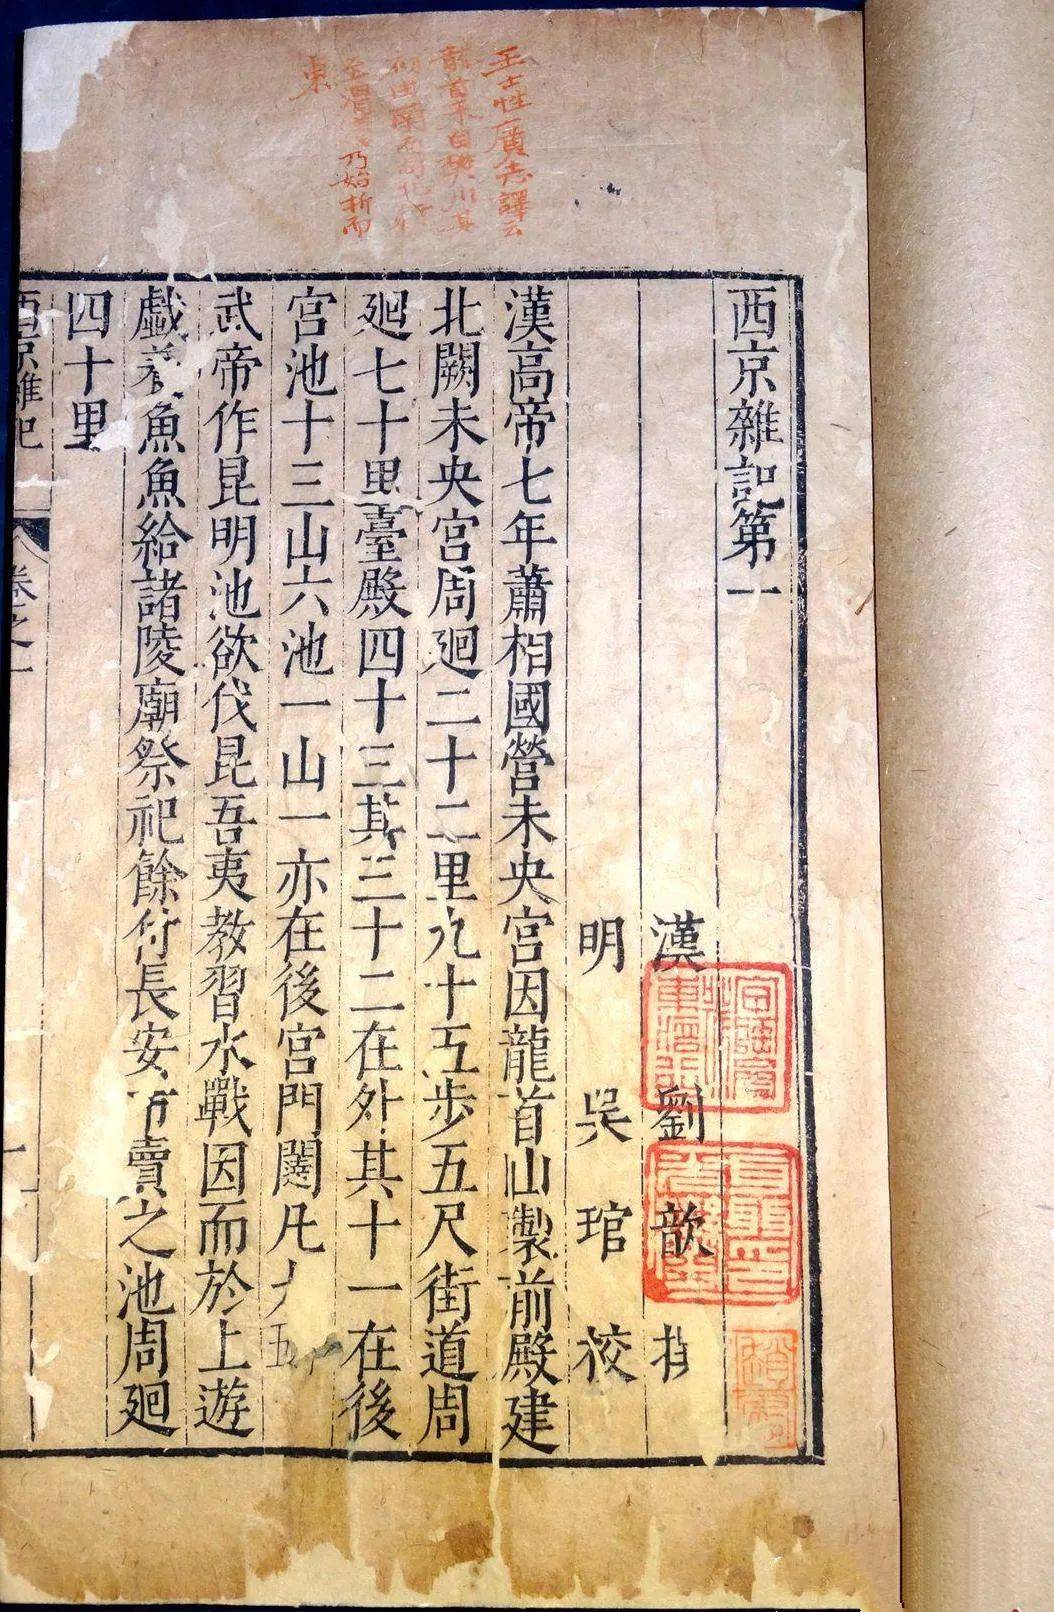 西京雜記第一
漢 劉 歆
明 吳 琯 校
漢高帝七年蕭相國營未央宮因龍首山製前殿建
北闕未央宮周廻二十二里九十五步五尺街道周
廻七十里臺殿四十三其三十二在外其十一在後
宮池十三山六池一山一亦在後宮門闥凡九十五
武帝作昆明池欲伐昆吾夷教習水戰因而於上遊
戲養魚魚給諸陵廟祭祀餘付長安市賣之池周廻
四十里
西京雜記 卷之一
王士性廣志譯云
龍首 自樊川其
南 北
至渭 乃始折而
東